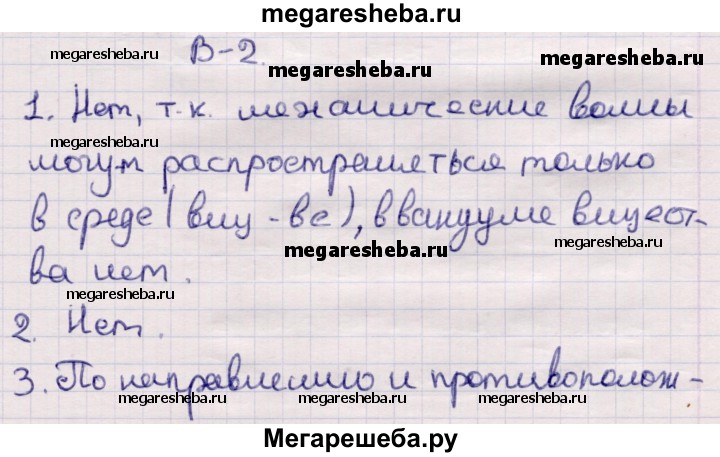 megaresheba.ru
В-2.
megaresheba.ru megaresheba.ru megaresheba.ru
1. Нет, т.к. механические волны
megaresheba.ru
могут распространяться только
megaresheba.ru megaresheba.ru
в среде (вещ-ве), в вакууме вещест-
megaresheba.ru megaresheba.ru
ва нет.
megaresheba.ru
2. Нет.
megaresheba.ru megaresheba.ru
3. По направлению и противополож-
megaresheba.ru megaresheba.ru megaresheba.ru
Мегарешеба.ру